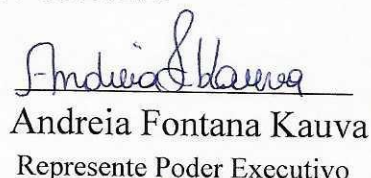 Andreia F. Kauva
Andreia Fontana Kauva
Represente Poder Executivo